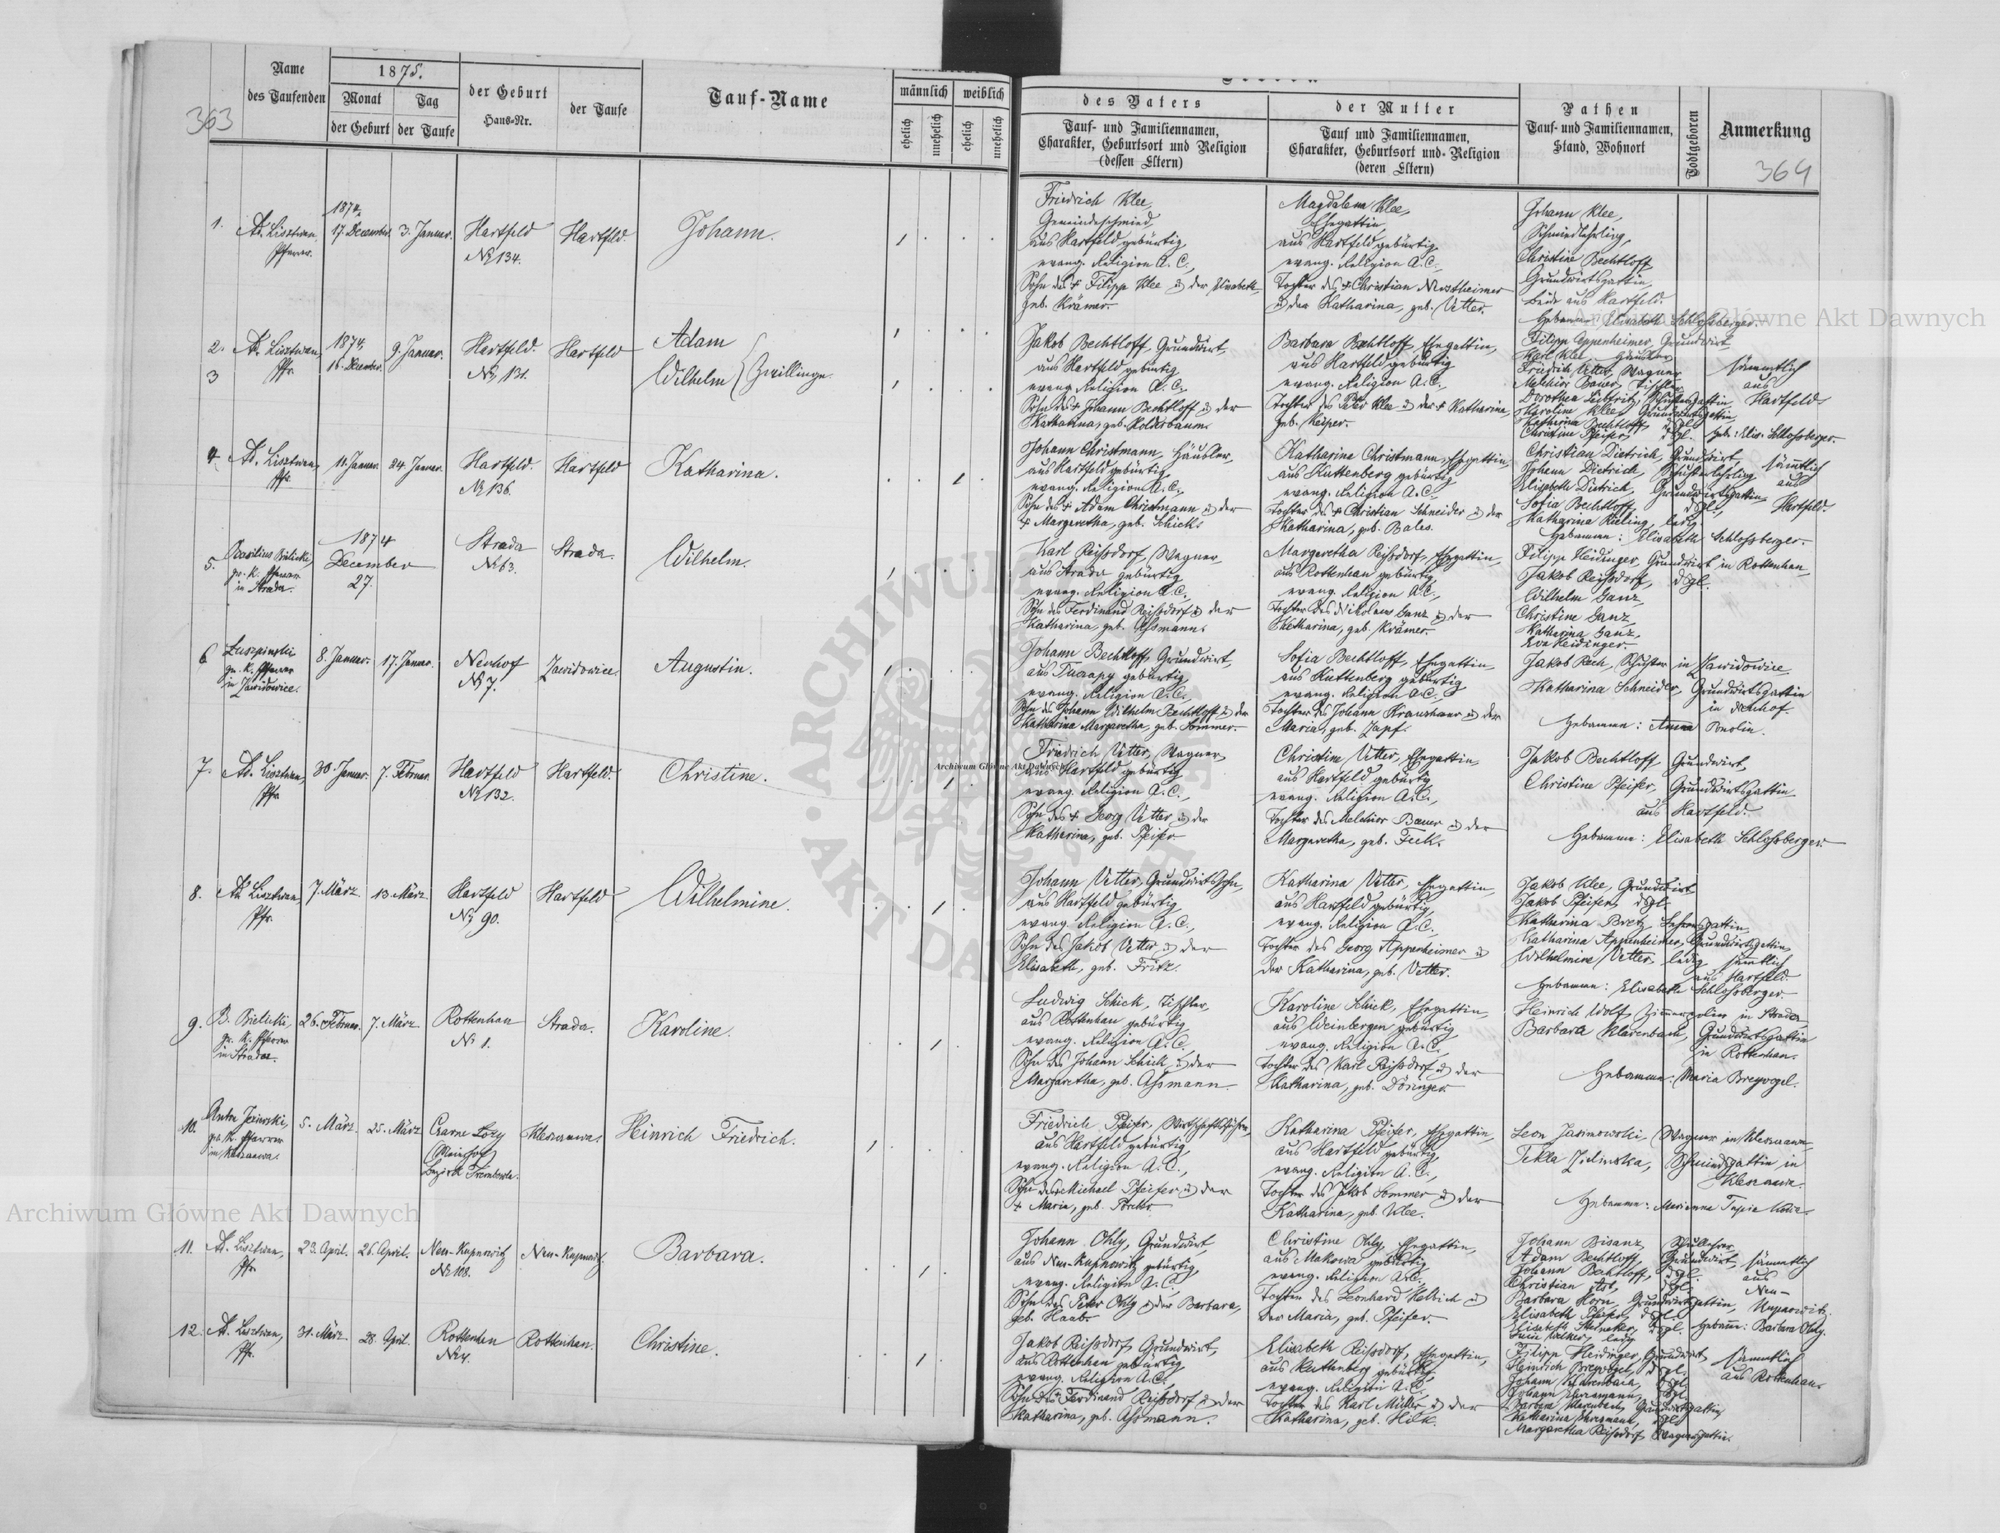 363
Name
des Taufenden
1875.
Monat
Tag
der Geburt
der Taufe
der Geburt
Haus-Nr.
der Taufe
Tauf-Name
männlich
weiblich
ehelich
unehelich
ehelich
unehelich
des Vaters
Tauf- und Familiennamen,
Charakter, Geburtsort und Religion
(dessen Eltern)
der Mutter
Tauf und Familiennamen,
Charakter, Geburtsort und Religion
(deren Eltern)
Pathen
Tauf- und Familiennamen,
Stand, Wohnort
Todtgeboren
Anmerkung
364
1.
Ad. Lisztwan,
Pfarrer.
1874,
17. December.
3. Januar.
Hartfeld
№ 134.
Hartfeld.
Johann.
Friedrich Klee,
Gemeindeschmied,
aus Hartfeld gebürtig,
evang. Religion A. C.,
Sohn des + Filipp Klee u. der Elisabeth,
geb. Krämer.
Magdalena Klee,
Ehegattin,
aus Hartfeld gebürtig,
evang. Religion A.C.,
Tochter des + Christian Mastheimer
u. der Katharina, geb. Vetter.
Johann Klee,
Schmiedlehrling,
Christine Bechtloff
Grundwirtsgattin,
beide aus Hartfeld.
Hebamme: Elisabeth Schlossberger.
2.
3
Ad. Lisztwan,
Pfr.
1874,
16. December.
9. Januar.
Hartfeld.
№ 131.
Hartfeld
Adam
Wilhelm } Zwillinge.
Jakob Bechtloff, Grundwirt,
aus Hartfeld gebürtig
evang. Religion A. C.,
Sohn des + Johann Bechtloff u. der
Katharina, geb. Koldebaum.
Barbara Bechtloff, Ehegattin,
aus Hartfeld gebürtig
evang. Religion A. C.,
Tochter des Peter Klee u. der + Katharina,
geb. Keiper.
Filipp Oppenheimer, Grundwirt
Karl Klee,
Friedrich Vetter, Wagner
Melchior Bauer, Tischler
Karoline Klee, Grundwirtsgattin,
Katharina Bechtloff, dsgl.
Christine Pfeifer, dsgl.
sämmtlich
aus
Hartfeld.
Heb.: Elis. Schlossberger.
4.
Ad. Lisztwan,
Pfr.
11. Januar.
24. Januar.
Hartfeld.
№ 136.
Hartfeld
Katharina.
Johann Christmann, Häusler,
aus Hartfeld gebürtig
evang. Religion A. C.,
Sohn des + Adam Christmann u. der
+ Margaretha, geb. Schick.
Katharina Christmann, Ehegattin,
aus Kuttenberg gebürtig
evang. Religion A.C.,
Tochter des + Christian Schneider u. der
Katharina, geb. Bales.
Christian Dietrich, Grundwirt
Johann Dietrich, Schusterlehrling
Elisabeth Dietrich, Grundwirtsgattin
Sofia Bechtloff, dsgl.
Katharina Kieling, ledig
sämtlich
aus
Hartfeld.
Hebamme: Elisabeth Schlossberger.
5.
Basilius Bielicki,
gr. k. Pfarrer
in Strada.
1874
December
27.
Strada
№ 63.
Strada.
Wilhelm.
Karl Reissdorf, Wagner
aus Strada gebürtig
evang. Religion A.C.,
Sohn des Ferdinand Reissdorf u. der
Katharina, geb. Assmann.
Margaretha Reissdorf, Ehegattin,
aus Rottenhan gebürtig
evang. Religion A.C.,
Tochter des Nikolaus Ganz u. der
Katharina, geb. Krämer.
Filipp Heidinger, Grundwirt in Rottenhan,
Jakob Reissdorf, dsgl.
Wilhelm Ganz,
Christine Ganz,
Katharina Ganz,
Eva Heidinger.
6
gr. k. Pfarrer
in Zawidowice.
8. Januar.
17. Januar.
Neuhof
№ 7.
Zawidowice.
Augustin.
Johann Bechtloff, Grundwirt,
gebürtig
evang. Religion A. C.,
Sohn des Johann Wilhelm Bechtloff u. der
Katharina Margaretha, geb. Sommer.
Sofia Bechtloff, Ehegattin
aus Kuttenberg gebürtig
evang. Religion A.C.,
Tochter des Johann Kraushaar u. der
Maria, geb. Zapf.
Jakob Rech, Schuster in Zawidowice
Katharina Schneider, Grundwirtsgattin
in Neuhof.
Hebamme: Anna
7.
Ad. Lisztwan,
Pfr.
30. Januar.
7. Februar.
Hartfeld
№ 132.
Hartfeld.
Christine.
Friedrich Vetter, Wagner,
aus Hartfeld gebürtig
evang. Religion A. C.,
Sohn des + Georg Vetter u. der
Katharina, geb. Pfeifer
Christine Vetter, Ehegattin
aus Hartfeld gebürtig
evang. Religion A.C.,
Tochter des Melchior Bauer u. der
Margaretha, geb. Fuck.
Jakob Bechtloff, Grundwirt,
Christine Pfeifer, Grundwirtsgattin
aus Hartfeld.
Hebamme: Elisabeth Schlossberger.
8.
Ad. Lisztwan,
Pfr.
7. März
13. März.
Hartfeld
№ 90.
Hartfeld
Wilhelmine.
Johann Vetter, Grundwirtssohn,
aus Hartfeld gebürtig
evang. Religion A. C.,
Sohn des Jakob Vetter u. der
Elisabeth, geb. Fritz.
Katharina Vetter, Ehegattin,
aus Hartfeld gebürtig,
evang. Religion A. C.,
Tochter des Georg Appenheimer u.
der Katharina, geb. Vetter.
Jakob Klee, Grundwirt
Jakob Pfeifer, dsgl.
Katharina Bretz, Lehrersgattin,
Katharina Appenheimer, Grundwirtsgattin
Wilhelmine Vetter, ledig, sämtlich
aus Hartfeld.
Hebamme: Elisabeth Schlossberger.
9.
B. Bielicki,
gr. k. Pfarrer
in Strada.
26. Februar.
7. März
Rottenhan
№ 1.
Strada.
Karoline.
Ludwig Schick, Tischler,
aus Rottenhan gebürtig
evang. Religion A. C.
Sohn des Johann Schick u. der
Margaretha, geb. Assmann.
Karoline Schick, Ehegattin,
aus Weinbergen gebürtig
evang. Religion A. C.,
Tochter des Karl Reissdorf u. der
Katharina, geb. Döringer.
Heinrich Wolf, in Strada
Barbara Klarenbach, Grundwirtsgattin
in Rottenhan.
Hebamme: Maria Bregvogel.
10.
gr. k. Pfarrer
5. März
25. März
Czarne Łozy
(Meierhof)
Bezirk Trembowla.
Heinrich Friedrich.
Friedrich Pfeifer, Wirtschaftsführer,
aus Hartfeld gebürtig,
evang. Religion A. C.,
Sohn des + Michael Pfeifer u. der
+ Maria, geb.
Katharina Pfeifer, Ehegattin,
aus Hartfeld gebürtig,
evang. Religion A. C.,
Tochter des Jakob Sommer u. der
Katharina, geb. Klee.
Leon Jasinowski, Wagner in
Tekla Zielinska, Schmiedsgattin in
Hebamme: Marianna
11.
Ad. Lisztwan,
Pfr.
23. April.
26. April.
Neu-Kupnowitz
№ 108.
Neu-Kupnowitz.
Barbara.
Johann Ohly, Grundwirt,
aus Neu-Kupnowitz gebürtig,
evang. Religion A. C.,
Sohn des Peter Ohly u. der Barbara,
geb. Haab.
Christine Ohly, Ehegattin,
aus Makowa gebürtig,
evang. Religion A.C.,
Tochter des Leonhard Helbich u.
der Maria, geb. Pfeifer.
Johann Bisanz,
Adam Bechtloff, Grundwirt,
Johann Bechtloff, dsgl.
Christian Ast, dsgl.
Barbara Horn, Grundwirtsgattin,
Elisabeth Pfeifer, dsgl.
sämmtlich
aus
Neu-
Kupnowitz.
Hebame: Barbara Ohly.
12.
Ad. Lisztwan,
Pfr.
31. März
28. April.
Rottenhan
№ 4.
Rottenhan.
Christine.
Jakob Reissdorf, Grundwirt,
aus Rottenhan gebürtig
evang. Religion A.C.,
Sohn des Ferdinand Reissdorf u. der
Katharina, geb. Assmann.
Elisabeth Reissdorf, Ehegattin,
aus Kuttenberg gebürtig
evang. Religion A. C.,
Tochter des Karl Müller u. der
Katharina, geb. Hick.
Filipp Heidinger, Grundwirt
Heinrich Bregvogel, dsgl.
Johann Klarenbach, dsgl.
Barbara Klarenbach, Grundwirtsgattin
Margaretha Reissdorf, Wagnersgattin.
sämmtlich
aus Rottenhan.
Archiwum Główne Akt Dawnych
Archiwum Główne Akt Dawnych
Archiwum Główne Akt Dawnych